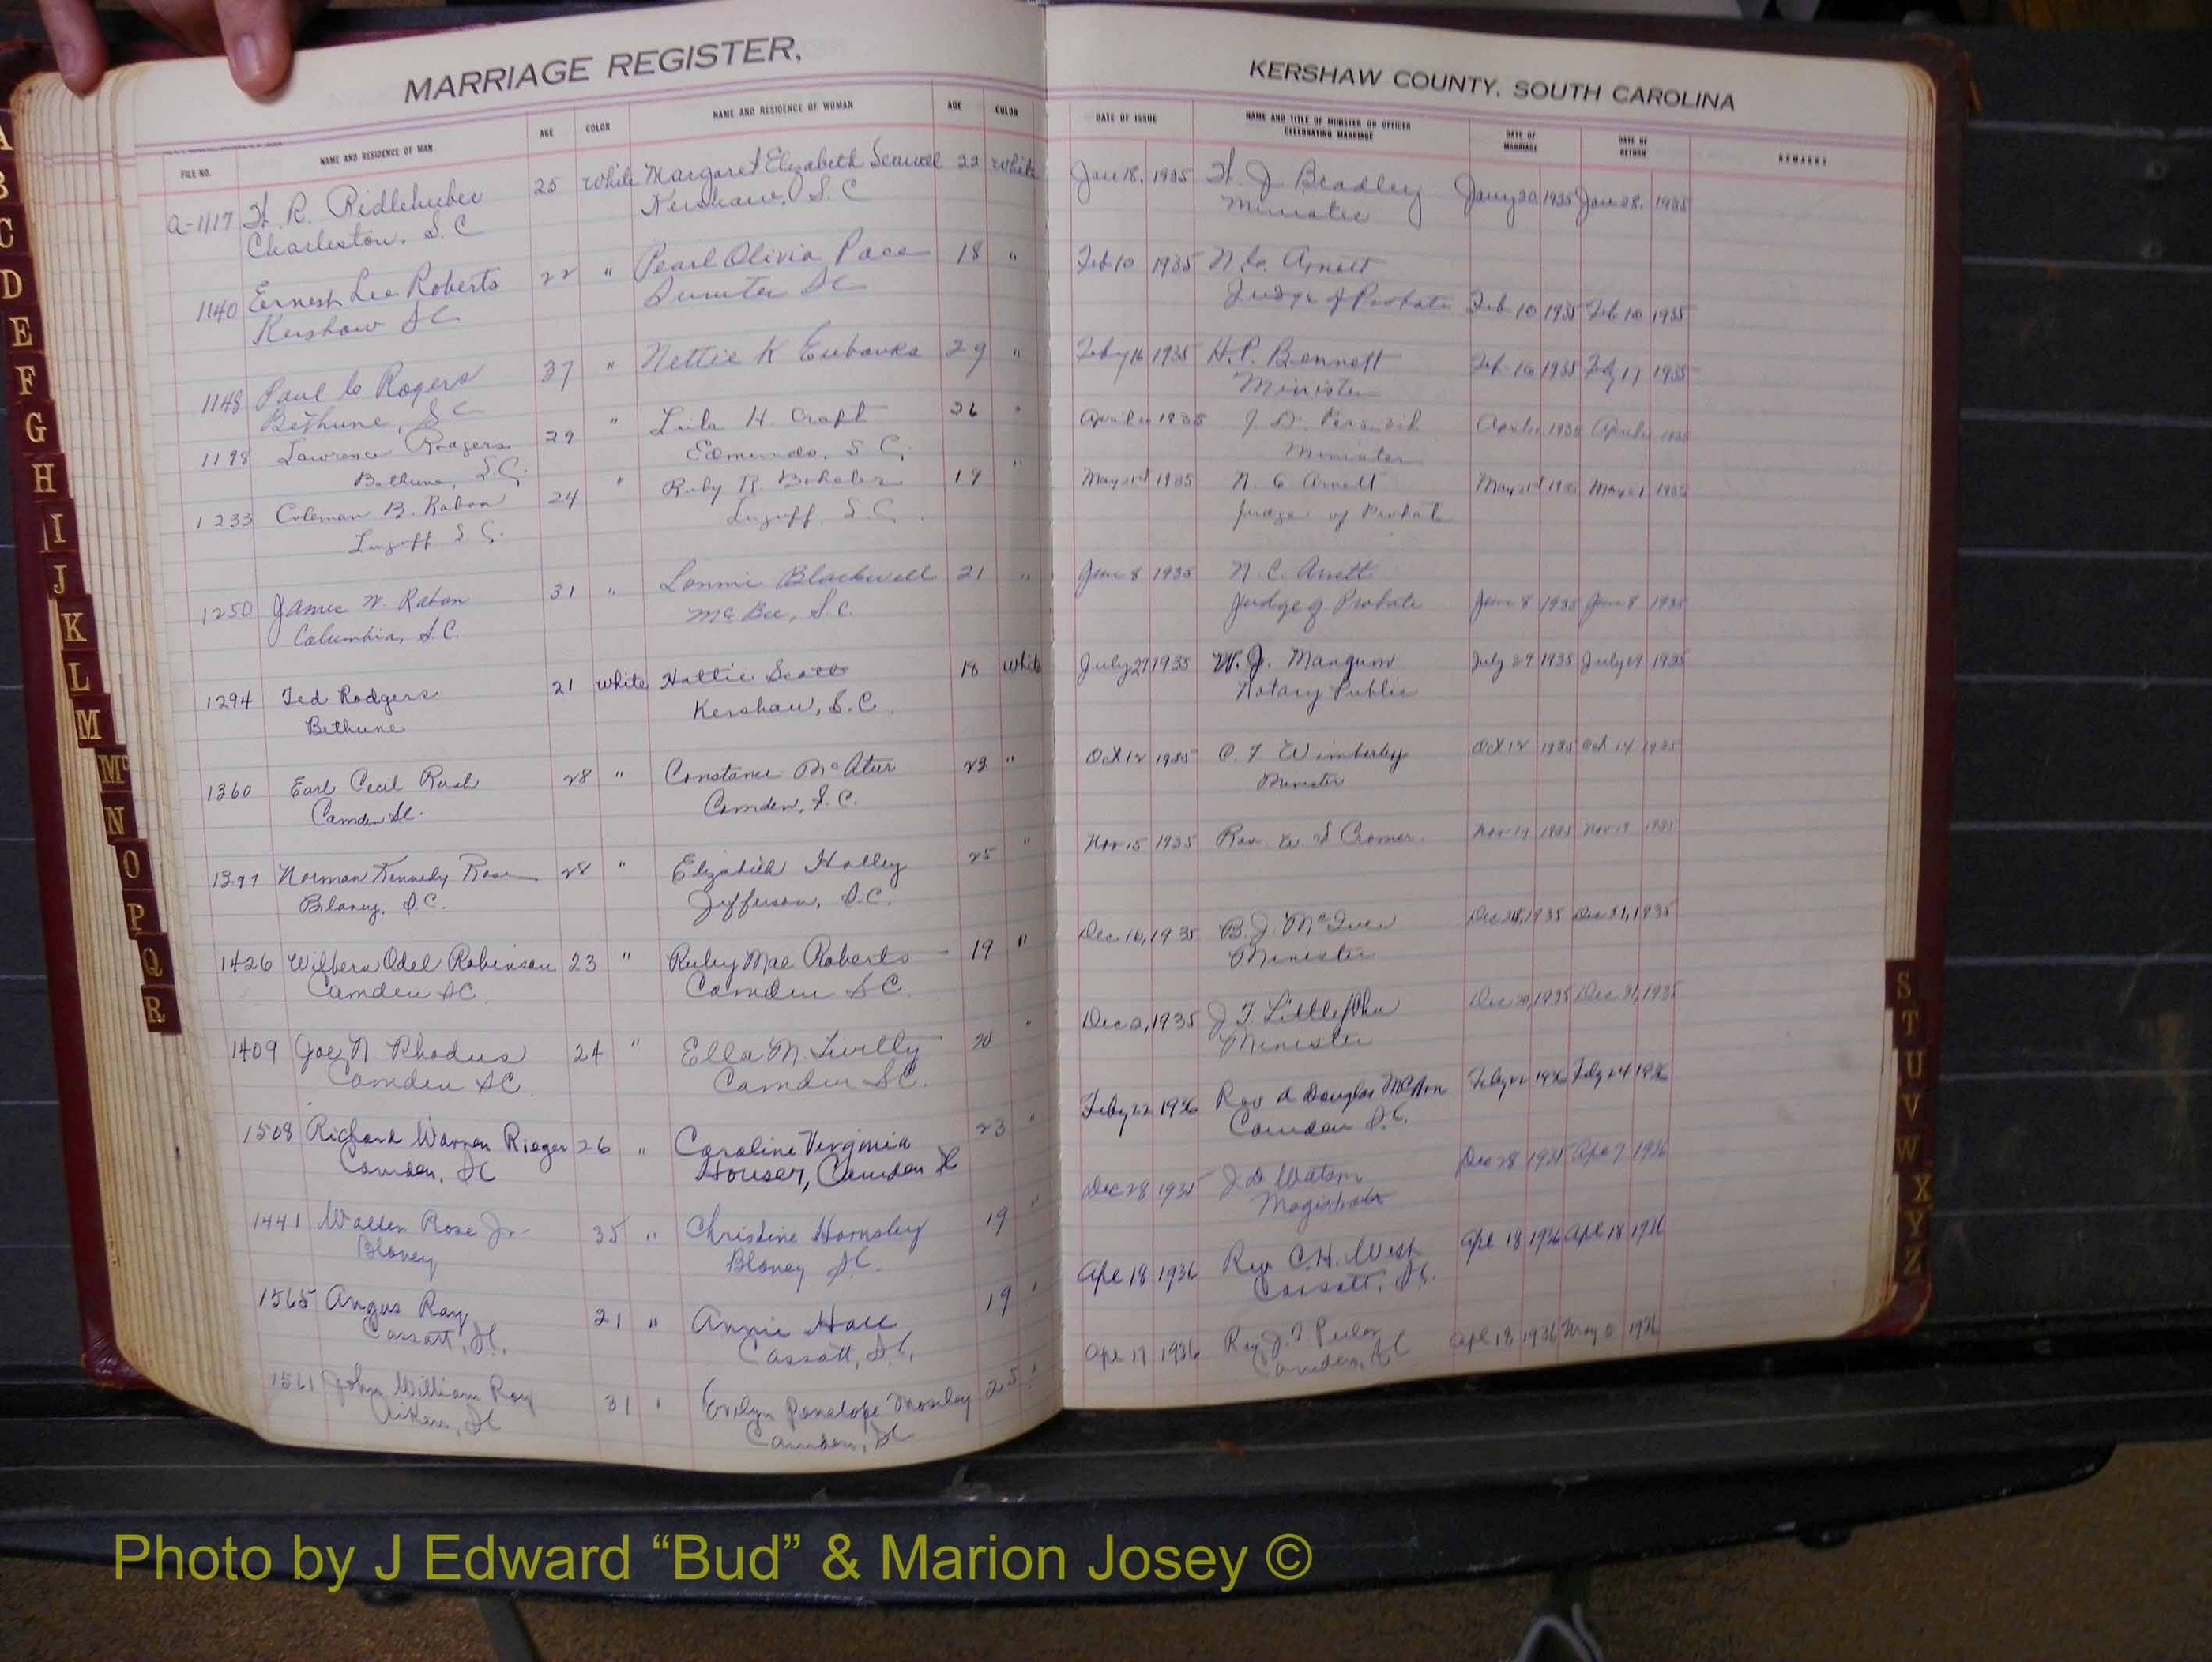 MARRIAGE REGISTER,
KERSHAW COUNTY, SOUTH CAROLINA
FILE NO. NAME AND RESIDENCE OF MAN AGE COLOR NAME AND RESIDENCE OF WOMAN AGE COLOR DATE OF ISSUE NAME AND TITLE OF MINISTER OR OFFICER CELEBRATING MARRIAGE DATE OF MARRIAGE DATE OF RETURN REMARKS
a-1117 H. R. Ridlehuber 25 White Margaret Elizabeth Seawell 22 White Jan 18, 1935 H. J. Bradley Jany 20 1935 Jan 28, 1935
Charleston, S.C Kershaw, S.C Minister
1140 Ernest Lee Roberts 22 " Pearl Olivia Pace 18 " Feb 10 1935 N.C. Arnett
Kershaw SC Sumter SC Judge of Probate Feb 10 1935 Feb 10 1935
1148 Paul C Rogers 37 " Nettie K Eubanks 29 " Feby 16 1935 H.P. Bennett Feb 16 1935 Feby 17 1935
Bethune, SC Minister
1198 Lawrence Rodgers 29 " Lula H. Craft 26 " April 1935 J D. Minister
Bethune, S.C. Edmunds, S.C.
1233 Coleman B. Rabon 24 " Ruby R. 19 " May 21st 1935 N. C Arnett May 21st 1935 May 21 1935
Lugoff S.C. Lugoff, S.C. Judge of Probate
1250 James W. Rabon 31 " Lonnie Blackwell 21 " June 8 1935 N.C. Arnett
Columbia, S.C. McBee, S.C. Judge of Probate June 8 1935 June 8 1935
1294 Ted Rodgers 21 white Hattie Scott 18 White July 27 1935 W. J. Mangum July 27 1935 July 29 1935
Bethune Kershaw, S.C. Notary Public
1360 Earl Cecil Rush 28 " Constance McAteer " Oct 12 1935 C. F Wimberley Oct 12 1935 Oct 14 1935
Camden SC. Camden, S.C. Minister
1397 Norman Kennedy Rose 28 " Elizabeth Holley 25 " Nov 15 1935 Rev. Cromer. Nov 1935 Nov 1935
Blaney, S.C. Jefferson, S.C.
1426 Wilbern Odel Robinson 23 " Ruby Mae Roberts 19 " Dec 16, 1935 B.J. Dec 1935 Dec 31, 1935
Camden SC. Camden SC. Minister
1409 Joe N. Rhodus 24 " Ella M. Twitty 20 " Dec 2, 1935 J. T. Littlejohn Dec 1935 Dec 31, 1935
Camden SC. Camden SC. Minister
1508 Richard Warren Rieger 26 " Caroline Virginia 23 " Feby 22 1936 Rev A Douglas Feby 22 1936 Feby 24 1936
Camden, SC Houser, Camden SC Camden S.C.
1441 Walter Rose Jr. 35 " Christine Hornsby 19 " Dec 28 1935 J D Watson Dec 28 1935 Apr 7 1936
Blaney Blaney SC. Magistrate
1565 Angus Ray 21 " Annie Hall 19 " Apr 18 1936 Rev C.H. West Apr 18 1936 Apr 18 1936
Cassatt, SC. Cassatt, SC. Cassatt, SC.
1561 John William Ray 31 " Evelyn Penelope Moseley 25 " Apr 17 1936 Rev J. F Apr 18 1936 May 1936
Aiken, SC Camden, SC Camden, SC
A
B
C
D
E
F
G
H
I
J
K
L
M
Mc
N
O
P
Q
R
S
T
U
V
W
X
Y
Z
Photo by J Edward “Bud” & Marion Josey ©